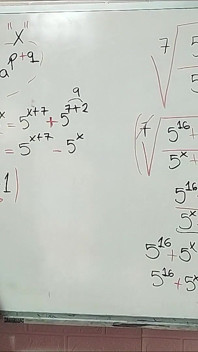 "x"
a^{p+q}
9
x = 5^{x+7} + 5^{7+2}
= 5^{x+7} - 5^x
1)
7√ 5
5
(7√ 5^{16} +
5^x +
5^{16}
5^x
5^{16} + 5^x
5^{16} + 5^x